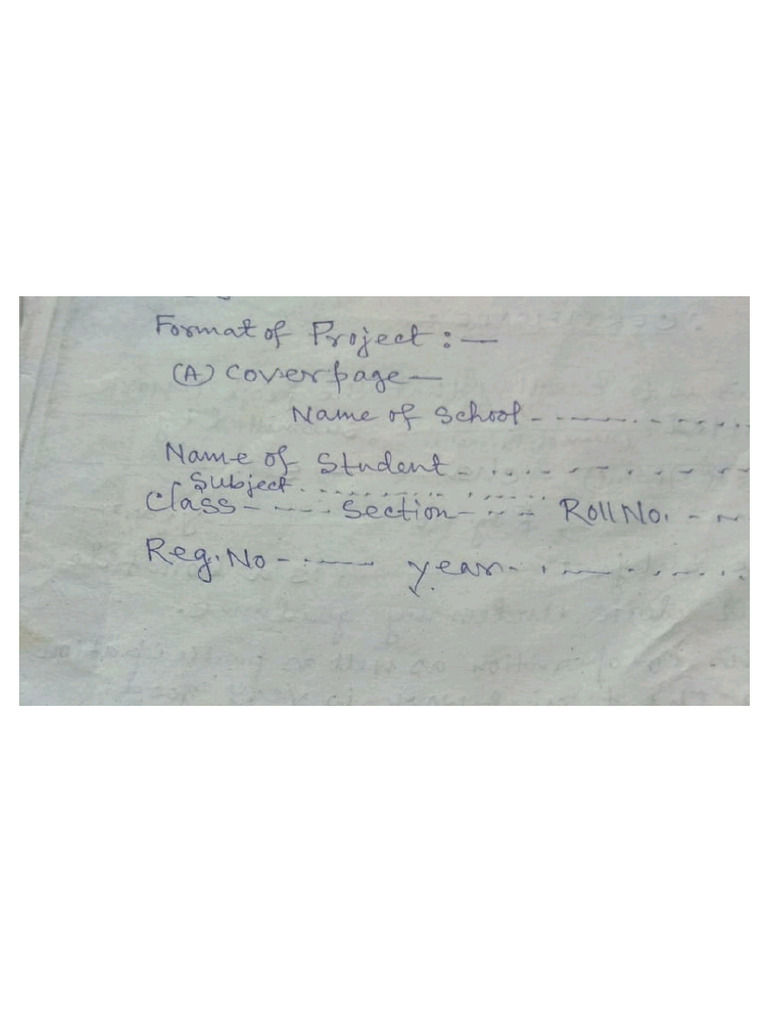 Format of Project : —
(A) Cover page —
Name of School - . - — . - . . . . .
Name of Student - . . . . - - . - - -
Subject . . . . . . . . . . . . . . .
Class - - - - . . Section - . - - - Roll No. - ~
Reg. No - . — . year - . . — . - . . . .